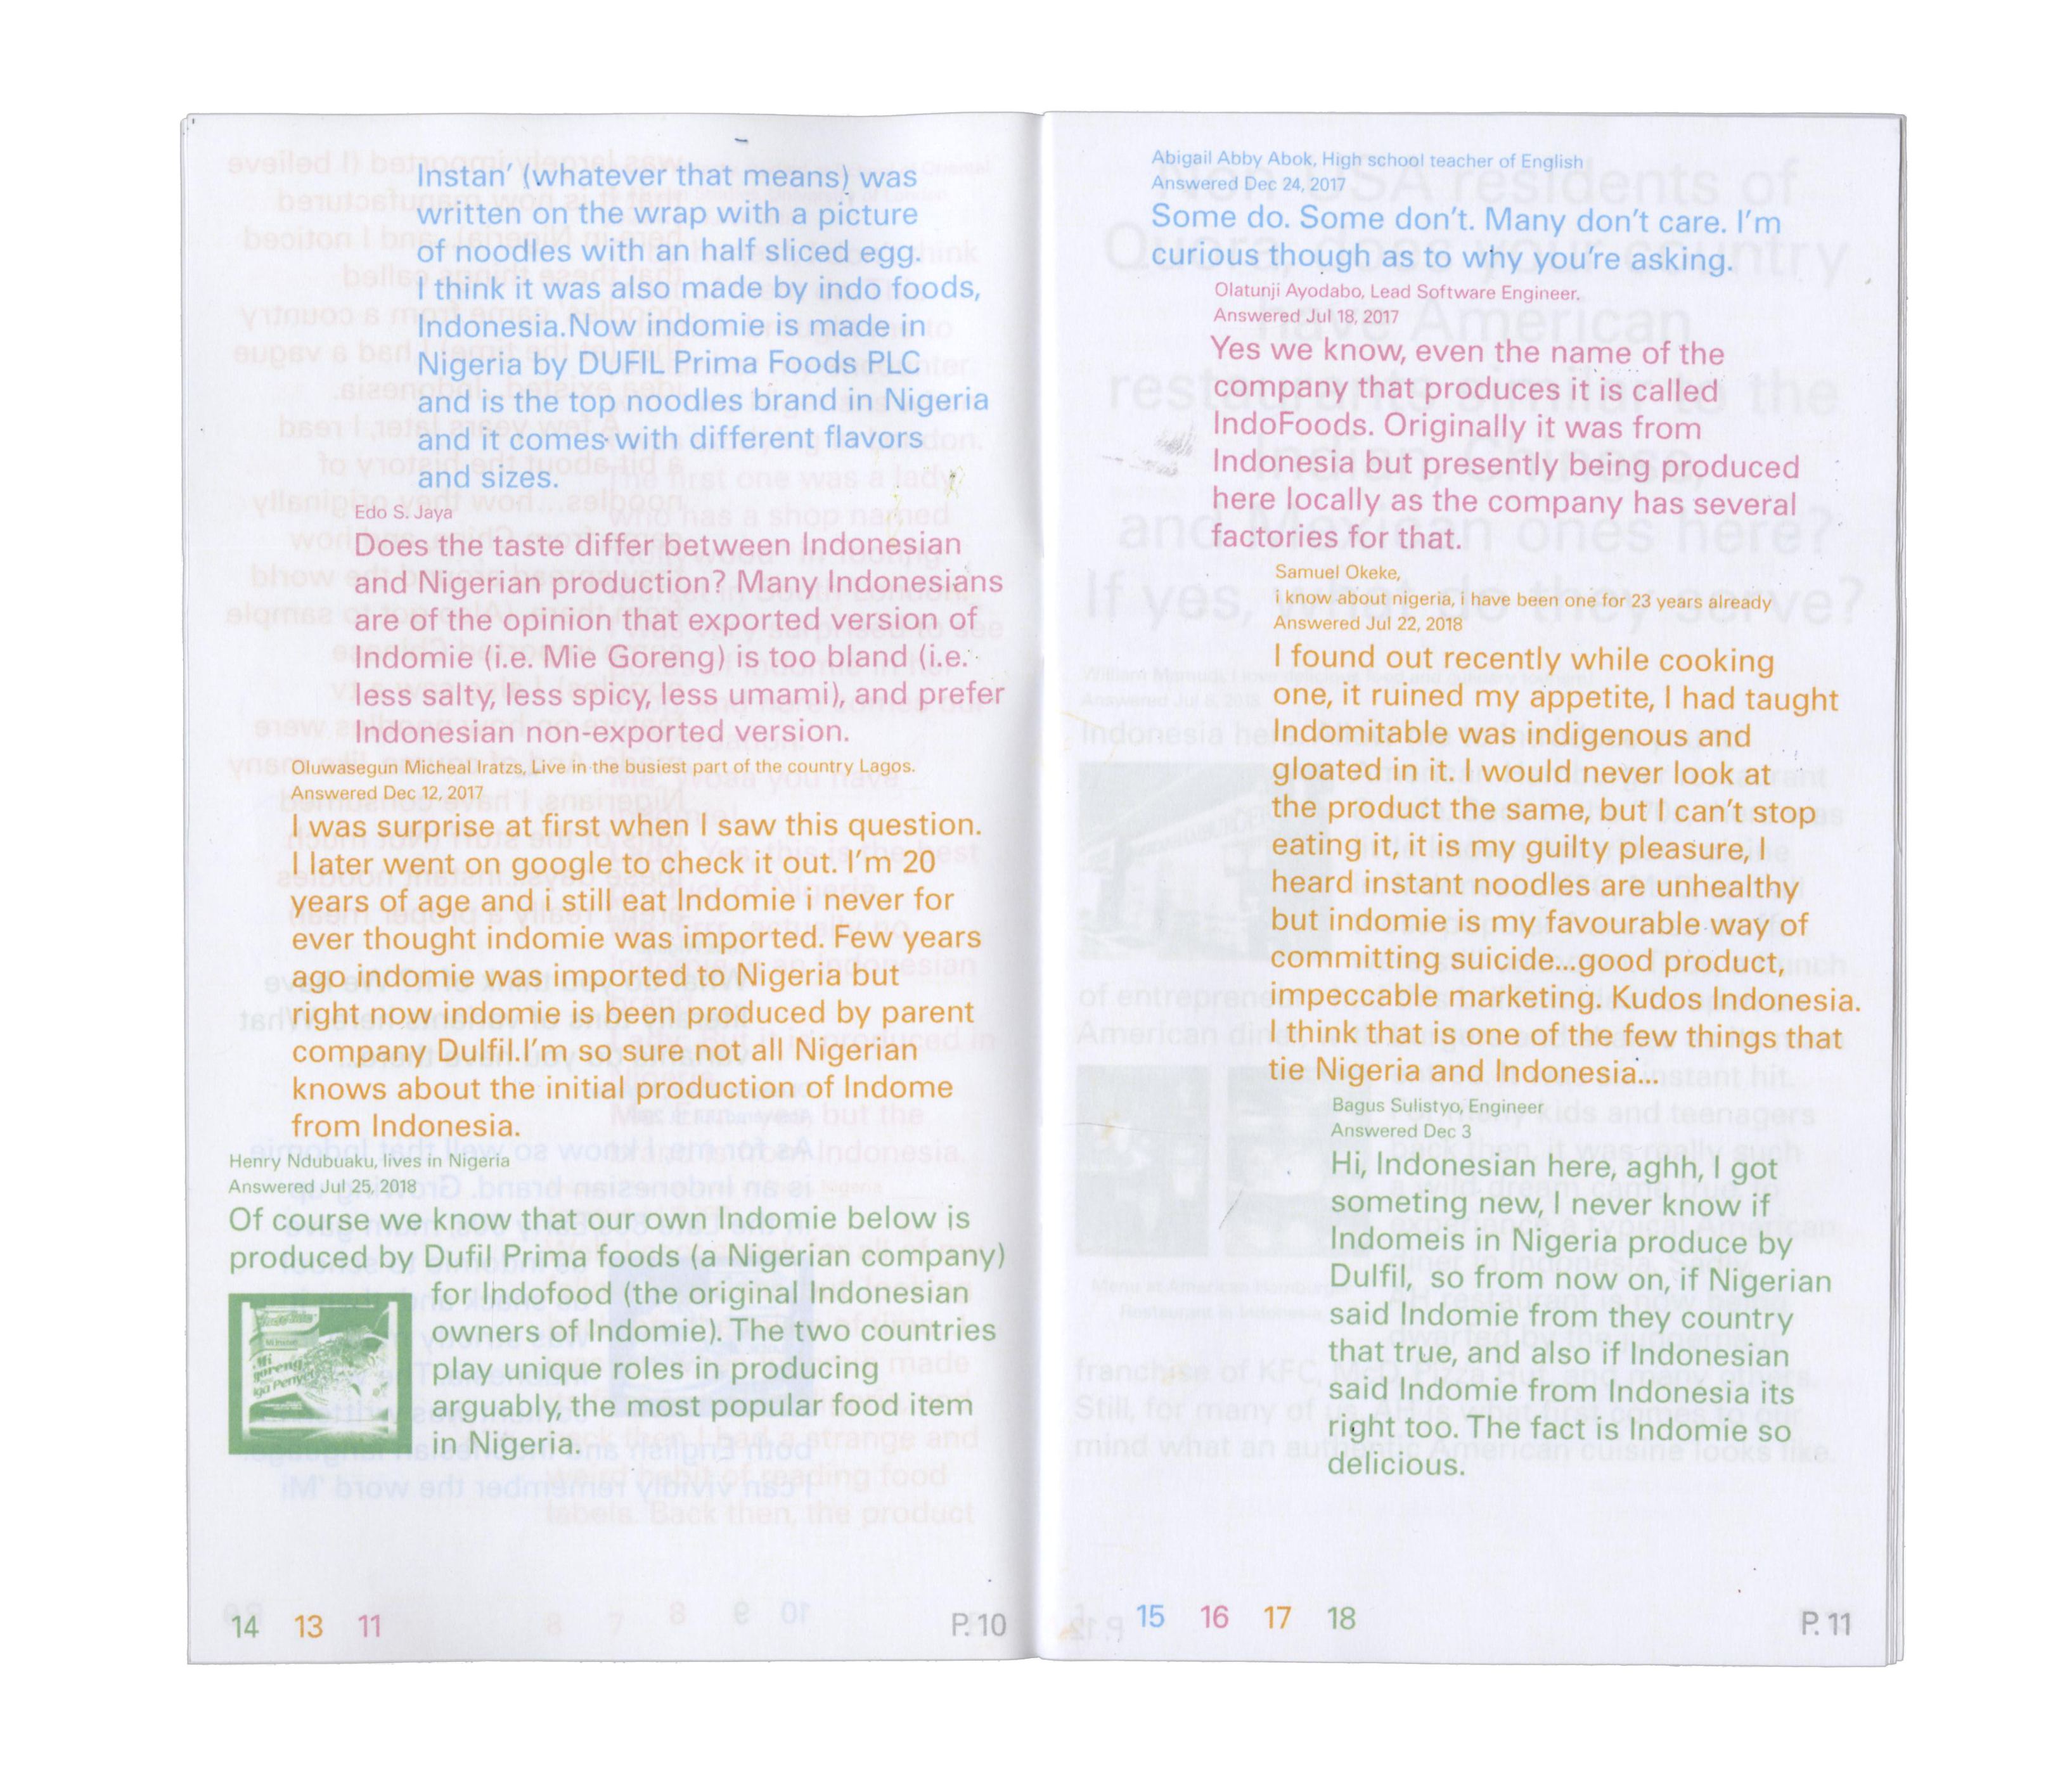 Instan’ (whatever that means) was
written on the wrap with a picture
of noodles with an half sliced egg.
I think it was also made by indo foods,
Indonesia.Now indomie is made in
Nigeria by DUFIL Prima Foods PLC
and is the top noodles brand in Nigeria
and it comes with different flavors
and sizes.
Edo S. Jaya
Does the taste differ between Indonesian
and Nigerian production? Many Indonesians
are of the opinion that exported version of
Indomie (i.e. Mie Goreng) is too bland (i.e.
less salty, less spicy, less umami), and prefer
Indonesian non-exported version.
Oluwasegun Micheal Iratzs, Live in the busiest part of the country Lagos.
Answered Dec 12, 2017
I was surprise at first when I saw this question.
I later went on google to check it out. I’m 20
years of age and i still eat Indomie i never for
ever thought indomie was imported. Few years
age indomie was imported to Nigeria but
right now indomie is been produced by parent
company Dulfil.I’m so sure not all Nigerian
knows about the initial production of Indome
from Indonesia.
Henry Ndubuaku, lives in Nigeria
Answered Jul 25, 2018
Of course we know that our own Indomie below is
produced by Dufil Prima foods (a Nigerian company)
for Indofood (the original Indonesian
owners of Indomie). The two countries
play unique roles in producing
arguably, the most popular food item
in Nigeria.
Mi
goreng
Iga Penyet
14 13 11
P. 10
Abigail Abby Abok, High school teacher of English
Answered Dec 24, 2017
Some do. Some don’t. Many don’t care. I’m
curious though as to why you’re asking.
Olatunji Ayodabo, Lead Software Engineer.
Answered Jul 18, 2017
Yes we know, even the name of the
company that produces it is called
IndoFoods. Originally it was from
Indonesia but presently being produced
here locally as the company has several
factories for that.
Samuel Okeke,
i know about nigeria, i have been one for 23 years already
Answered Jul 22, 2018
I found out recently while cooking
one, it ruined my appetite, I had taught
Indomitable was indigenous and
gloated in it. I would never look at
the product the same, but I can’t stop
eating it, it is my guilty pleasure, I
heard instant noodles are unhealthy
but indomie is my favourable way of
committing suicide...good product,
impeccable marketing. Kudos Indonesia.
I think that is one of the few things that
tie Nigeria and Indonesia...
Bagus Sulistyo, Engineer
Answered Dec 3
Hi, Indonesian here, aghh, I got
someting new, I never know if
Indomeis in Nigeria produce by
Dulfil,  so from now on, if Nigerian
said Indomie from they country
that true, and also if Indonesian
said Indomie from Indonesia its
right too. The fact is Indomie so
delicious.
15 16 17 18
P. 11